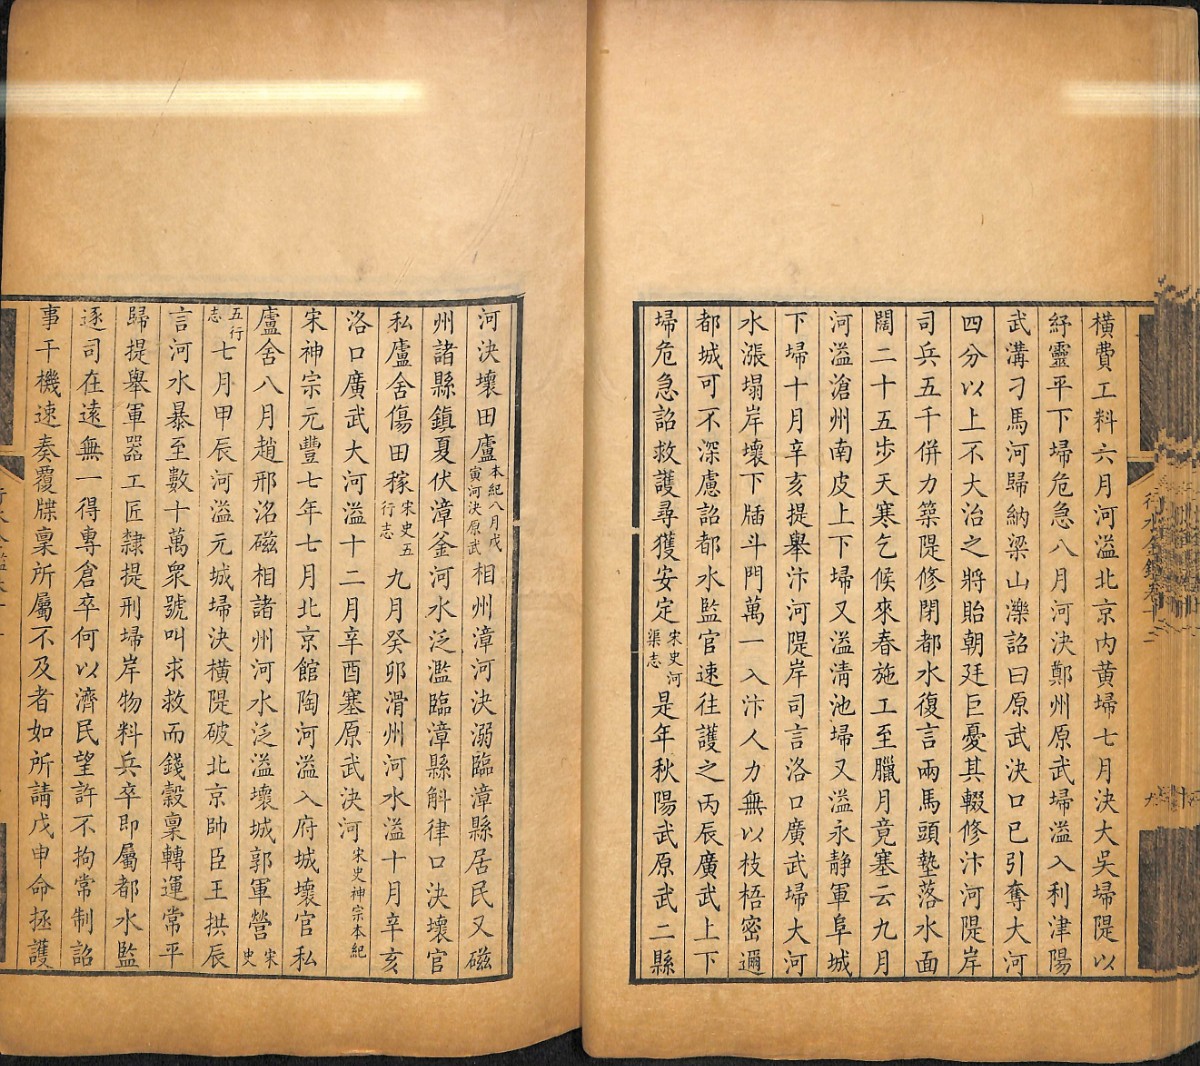 橫費工料六月河溢北京内黃埽七月決大吳埽隄以
紓靈平下埽危急八月河決鄭州原武埽溢入利津陽
武溝刁馬河歸納梁山濼詔曰原武決口已引奪大河
四分以上不大治之將貽朝廷巨憂其輟修汴河隄岸
司兵五千併力築隄修閉都水復言兩馬頭墊落水面
闊二十五步天寒乞候來春施工至臘月竟塞云九月
河溢滄州南皮上下埽又溢淸池埽又溢永静軍阜城
下埽十月辛亥提舉汴河隄岸司言洛口廣武埽大河
水漲塌岸壞下牐斗門萬一入汴人力無以枝梧密邇
都城可不深慮詔都水監官速往護之丙辰廣武上下
埽危急詔救護尋獲安定宋史河渠志是年秋陽武原武二縣
河決壞田廬本紀八月戊寅河決原武相州漳河決溺臨漳縣居民又磁
州諸縣鎮夏伏漳釜河水泛濫臨漳縣斛律口決壞官
私廬舍傷田稼宋史五行志九月癸卯滑州河水溢十月辛亥
洛口廣武大河溢十二月辛酉塞原武決河宋史神宗本紀
宋神宗元豐七年七月北京館陶河溢入府城壞官私
廬舍八月趙邢洺磁相諸州河水泛溢壞城郭軍營宋史
五行志七月甲辰河溢元城埽決橫隄破北京帥臣王拱辰
言河水暴至數十萬衆號叫求救而錢穀稟轉運常平
歸提舉軍器工匠隸提刑埽岸物料兵卒即屬都水監
逐司在遠無一得專倉卒何以濟民望許不拘常制詔
事干機速奏覆牒稟所屬不及者如所請戊申命拯護